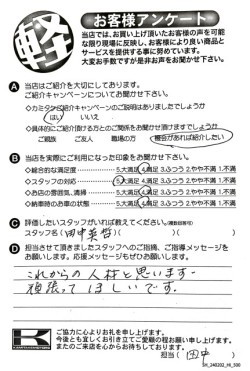 軽
お客様アンケート
当店では、お買い上げ頂いたお客様の声を可能
な限り現場に反映し、お客様により良い商品と
サービスを提供する事に努めています。
大変お手数ですが是非お声をお聞かせ下さい。
A 当店はご紹介を大切にしてあります。
ご紹介キャンペーンについてお聞かせ下さい。
◇カミタケ紹介キャンペーンのご説明はありましたでしょうか
はい いいえ
◇具体的にご紹介頂ける方とのご関係をお聞かせ頂けますでしょうか
ご親族 ご友人 職場の方 機会があれば紹介したい
B 当店を実際にご利用になった印象をお聞かせ下さい。
◇総合的な満足度 5.大満足 4.満足 3.ふつう 2.やや不満 1.不満
◇スタッフの対応 5.大満足 4.満足 3.ふつう 2.やや不満 1.不満
◇お店の雰囲気、清掃 5.大満足 4.満足 3.ふつう 2.やや不満 1.不満
◇納車時のお車の状態 5.大満足 4.満足 3.ふつう 2.やや不満 1.不満
C 評価したいスタッフがいれば教えてください。(複数回答可)
スタッフ名( 田中 )( )( )
D 担当させて頂きましたスタッフへのご指摘、ご指導メッセージを
お願いします。応援メッセージもぜひお願いします。
これからの人材と思います。
頑張ってほしいです。
K
ご協力に心よりお礼を申し上げます。
今後とも宜しくお引き立てご愛顧の程お願い申し上げます。
またのご来店を心からお待ちしております。
担当( 田中 )
SH_240202_HI_300